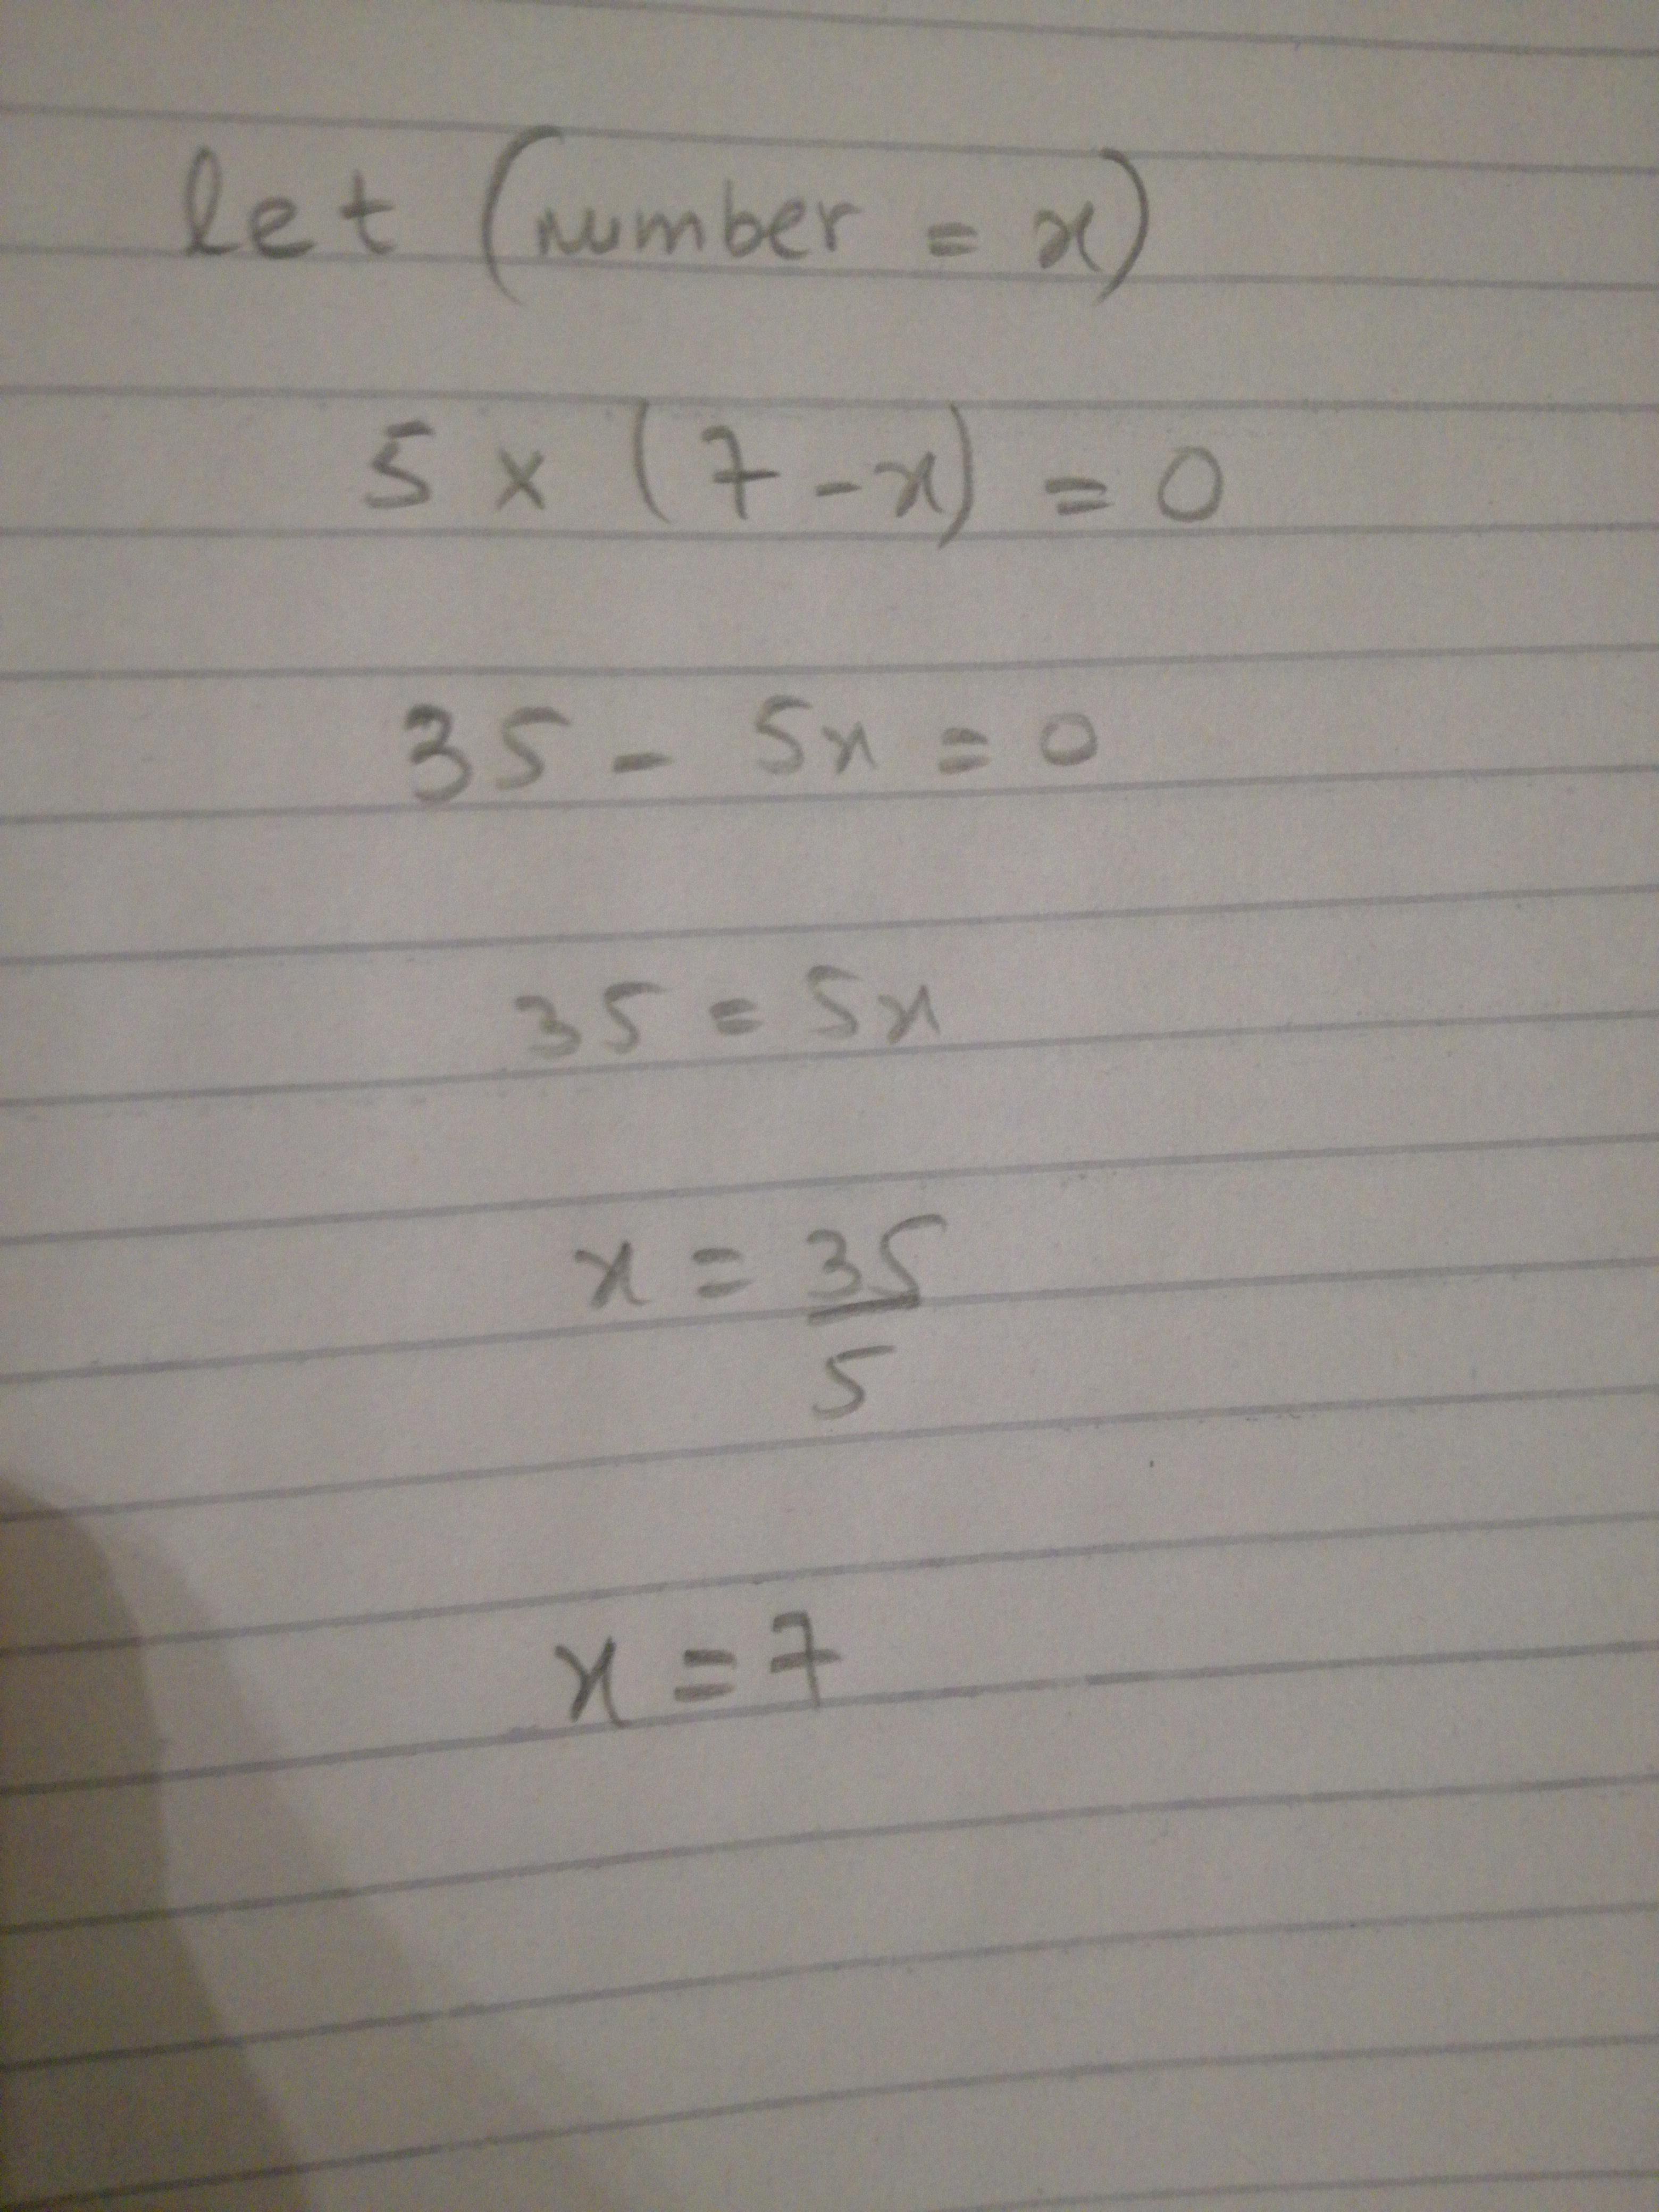 let (number = x)
5 x (7 - x) = 0
35 - 5x = 0
35 = 5x
x = 35
5
x = 7